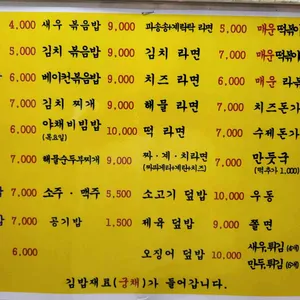 4,000 새우 볶음밥 9,000 파송송+계란탁 라면 5,000 매운떡볶이
5,000 김치 볶음밥 9,000 김치 라면 매운 떡볶
6,000 베이컨볶음밥 9,000 치즈 라면 매운 라
7,000 김치 찌개 9,000 해물 라면 7,000 치즈돈가
6,000 야채비빔밥 10,000 떡 라면 7,000 수제돈가
(목요일)
7,000 해물순두부찌개 9,000 짜·계·치라면 7,000 만둣국
(짜파게티+계란+치즈) (떡추가 1,000)
7,000 소주·맥주 5,500 소고기 덮밥 10,000 우동
7,000 공기밥 1,500 제육 덮밥 9,000 쫄면
6,000 오징어 덮밥 10,000 새우튀김
만두튀김
김밥재료(궁채)가 들어갑니다.